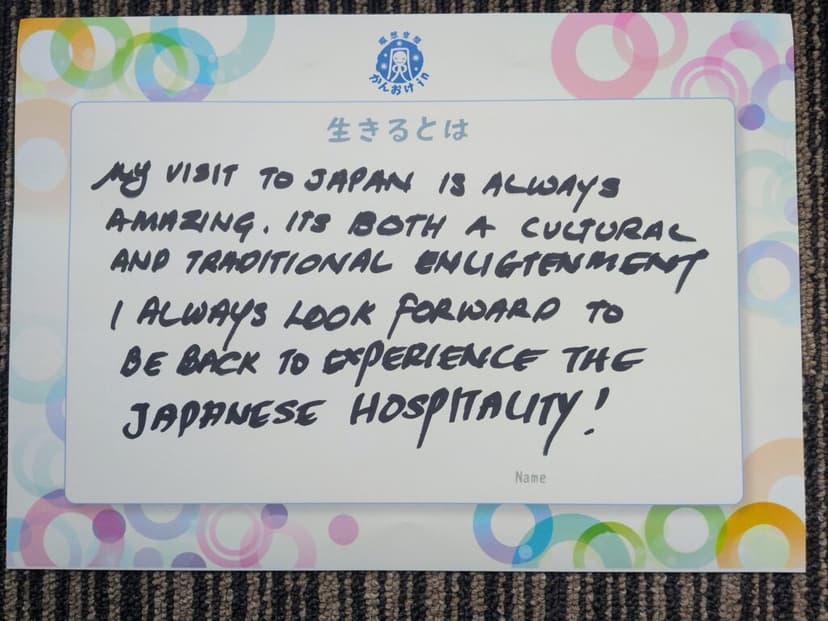 瞑想空間
かんおけin
生きるとは
MY VISIT TO JAPAN IS ALWAYS
AMAZING. ITS BOTH A CULTURAL
AND TRADITIONAL ENLIGTENMENT
I ALWAYS LOOK FORWARD TO
BE BACK TO EXPERIENCE THE
JAPANESE HOSPITALITY!
Name